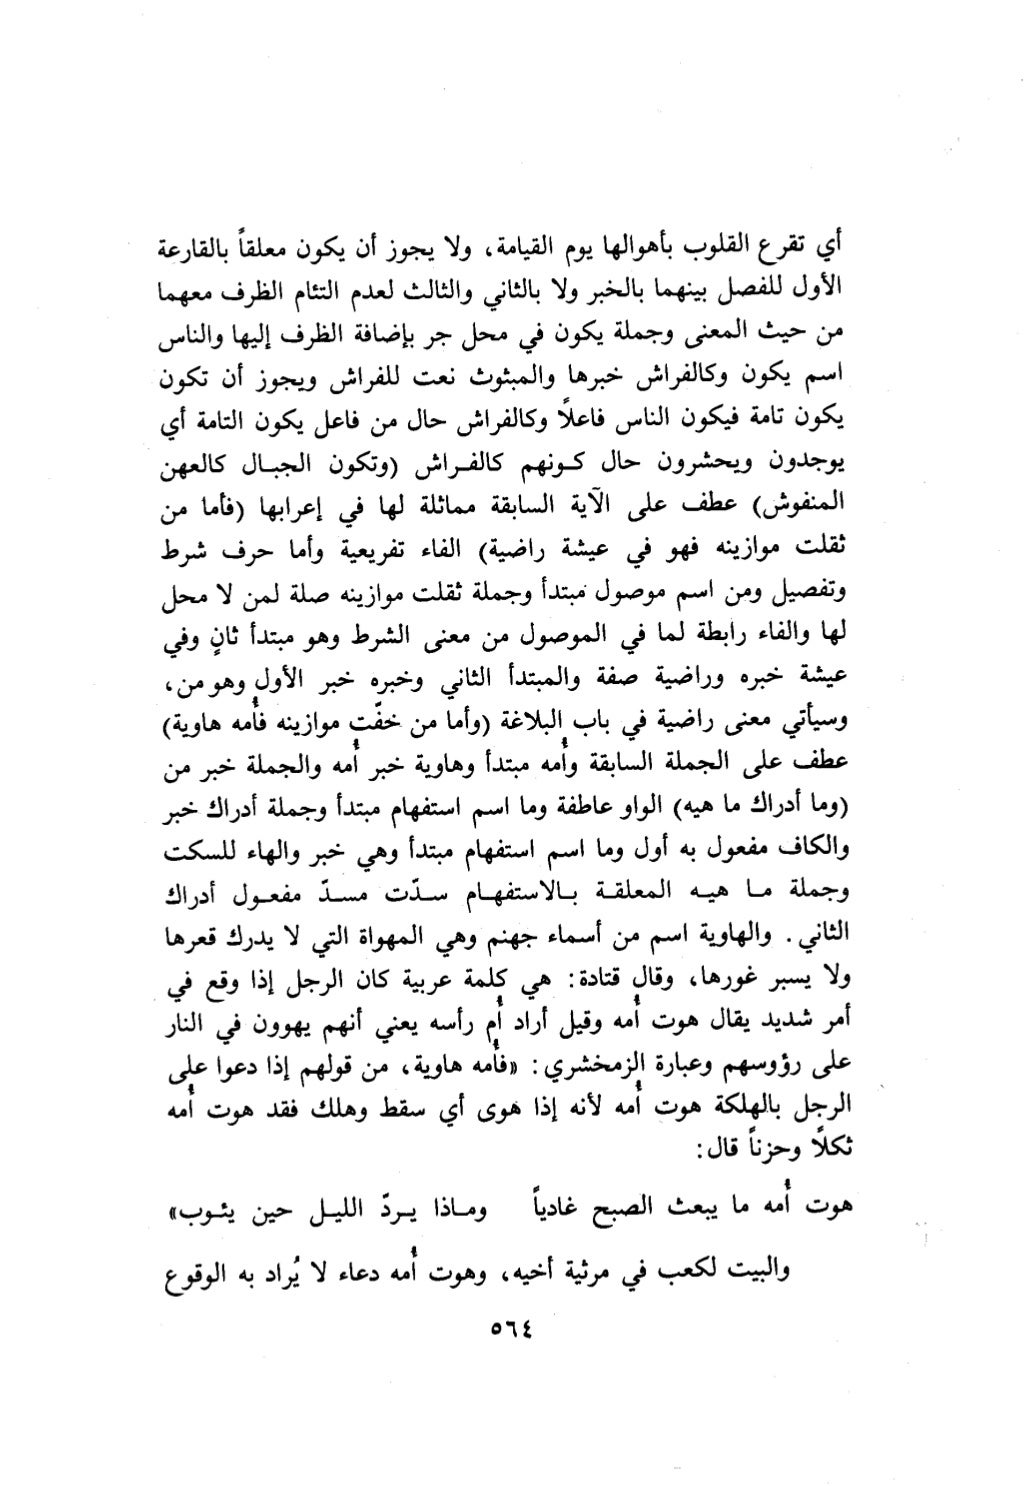 أي تقرع القلوب بأهوالها يوم القيامة، ولا يجوز أن يكون معلقاً بالقارعة
الأول للفصل بينهما بالخبر ولا بالثاني والثالث لعدم التئام الظرف معهما
من حيث المعنى وجملة يكون في محل جر بإضافة الظرف إليها والناس
اسم يكون وكالفراش خبرها والمبثوث نعت للفراش ويجوز أن تكون
يكون تامة فيكون الناس فاعلاً وكالفراش حال من فاعل يكون التامة أي
يوجدون ويحشرون حال كونهم كالفراش (وتكون الجبال كالعهن
المنفوش) عطف على الآية السابقة مماثلة لها في إعرابها (فأما من
ثقلت موازينه فهو في عيشة راضية) الفاء تفريعية وأما حرف شرط
وتفصيل ومن اسم موصول مبتدأ وجملة ثقلت موازينه صلة لمن لا محل
لها والفاء رابطة لما في الموصول من معنى الشرط وهو مبتدأ ثانٍ وفي
عيشة خبره وراضية صفة والمبتدأ الثاني وخبره خبر الأول وهو من،
وسيأتي معنى راضية في باب البلاغة (وأما من خفّت موازينه فأُمه هاوية)
عطف على الجملة السابقة وأُمه مبتدأ وهاوية خبر أُمه والجملة خبر من
(وما أدراك ما هيه) الواو عاطفة وما اسم استفهام مبتدأ وجملة أدراك خبر
والكاف مفعول به أول وما اسم استفهام مبتدأ وهي خبر والهاء للسكت
وجملة ما هيه المعلقة بالاستفهام سدّت مسدّ مفعول أدراك
الثاني. والهاوية اسم من أسماء جهنم وهي المهواة التي لا يدرك قعرها
ولا يسبر غورها، وقال قتادة: هي كلمة عربية كان الرجل إذا وقع في
أمر شديد يقال هوت أُمه وقيل أراد أُم رأسه يعني أنهم يهوون في النار
على رؤوسهم وعبارة الزمخشري: «فأُمه هاوية، من قولهم إذا دعوا على
الرجل بالهلكة هوت أُمه لأنه إذا هوى أي سقط وهلك فقد هوت أُمه
ثكلاً وحزناً قال:
هوت أُمه ما يبعث الصبح غادياً وماذا يردّ الليل حين يئوب»
والبيت لكعب في مرثية أخيه، وهوت أُمه دعاء لا يُراد به الوقوع
٥٦٤